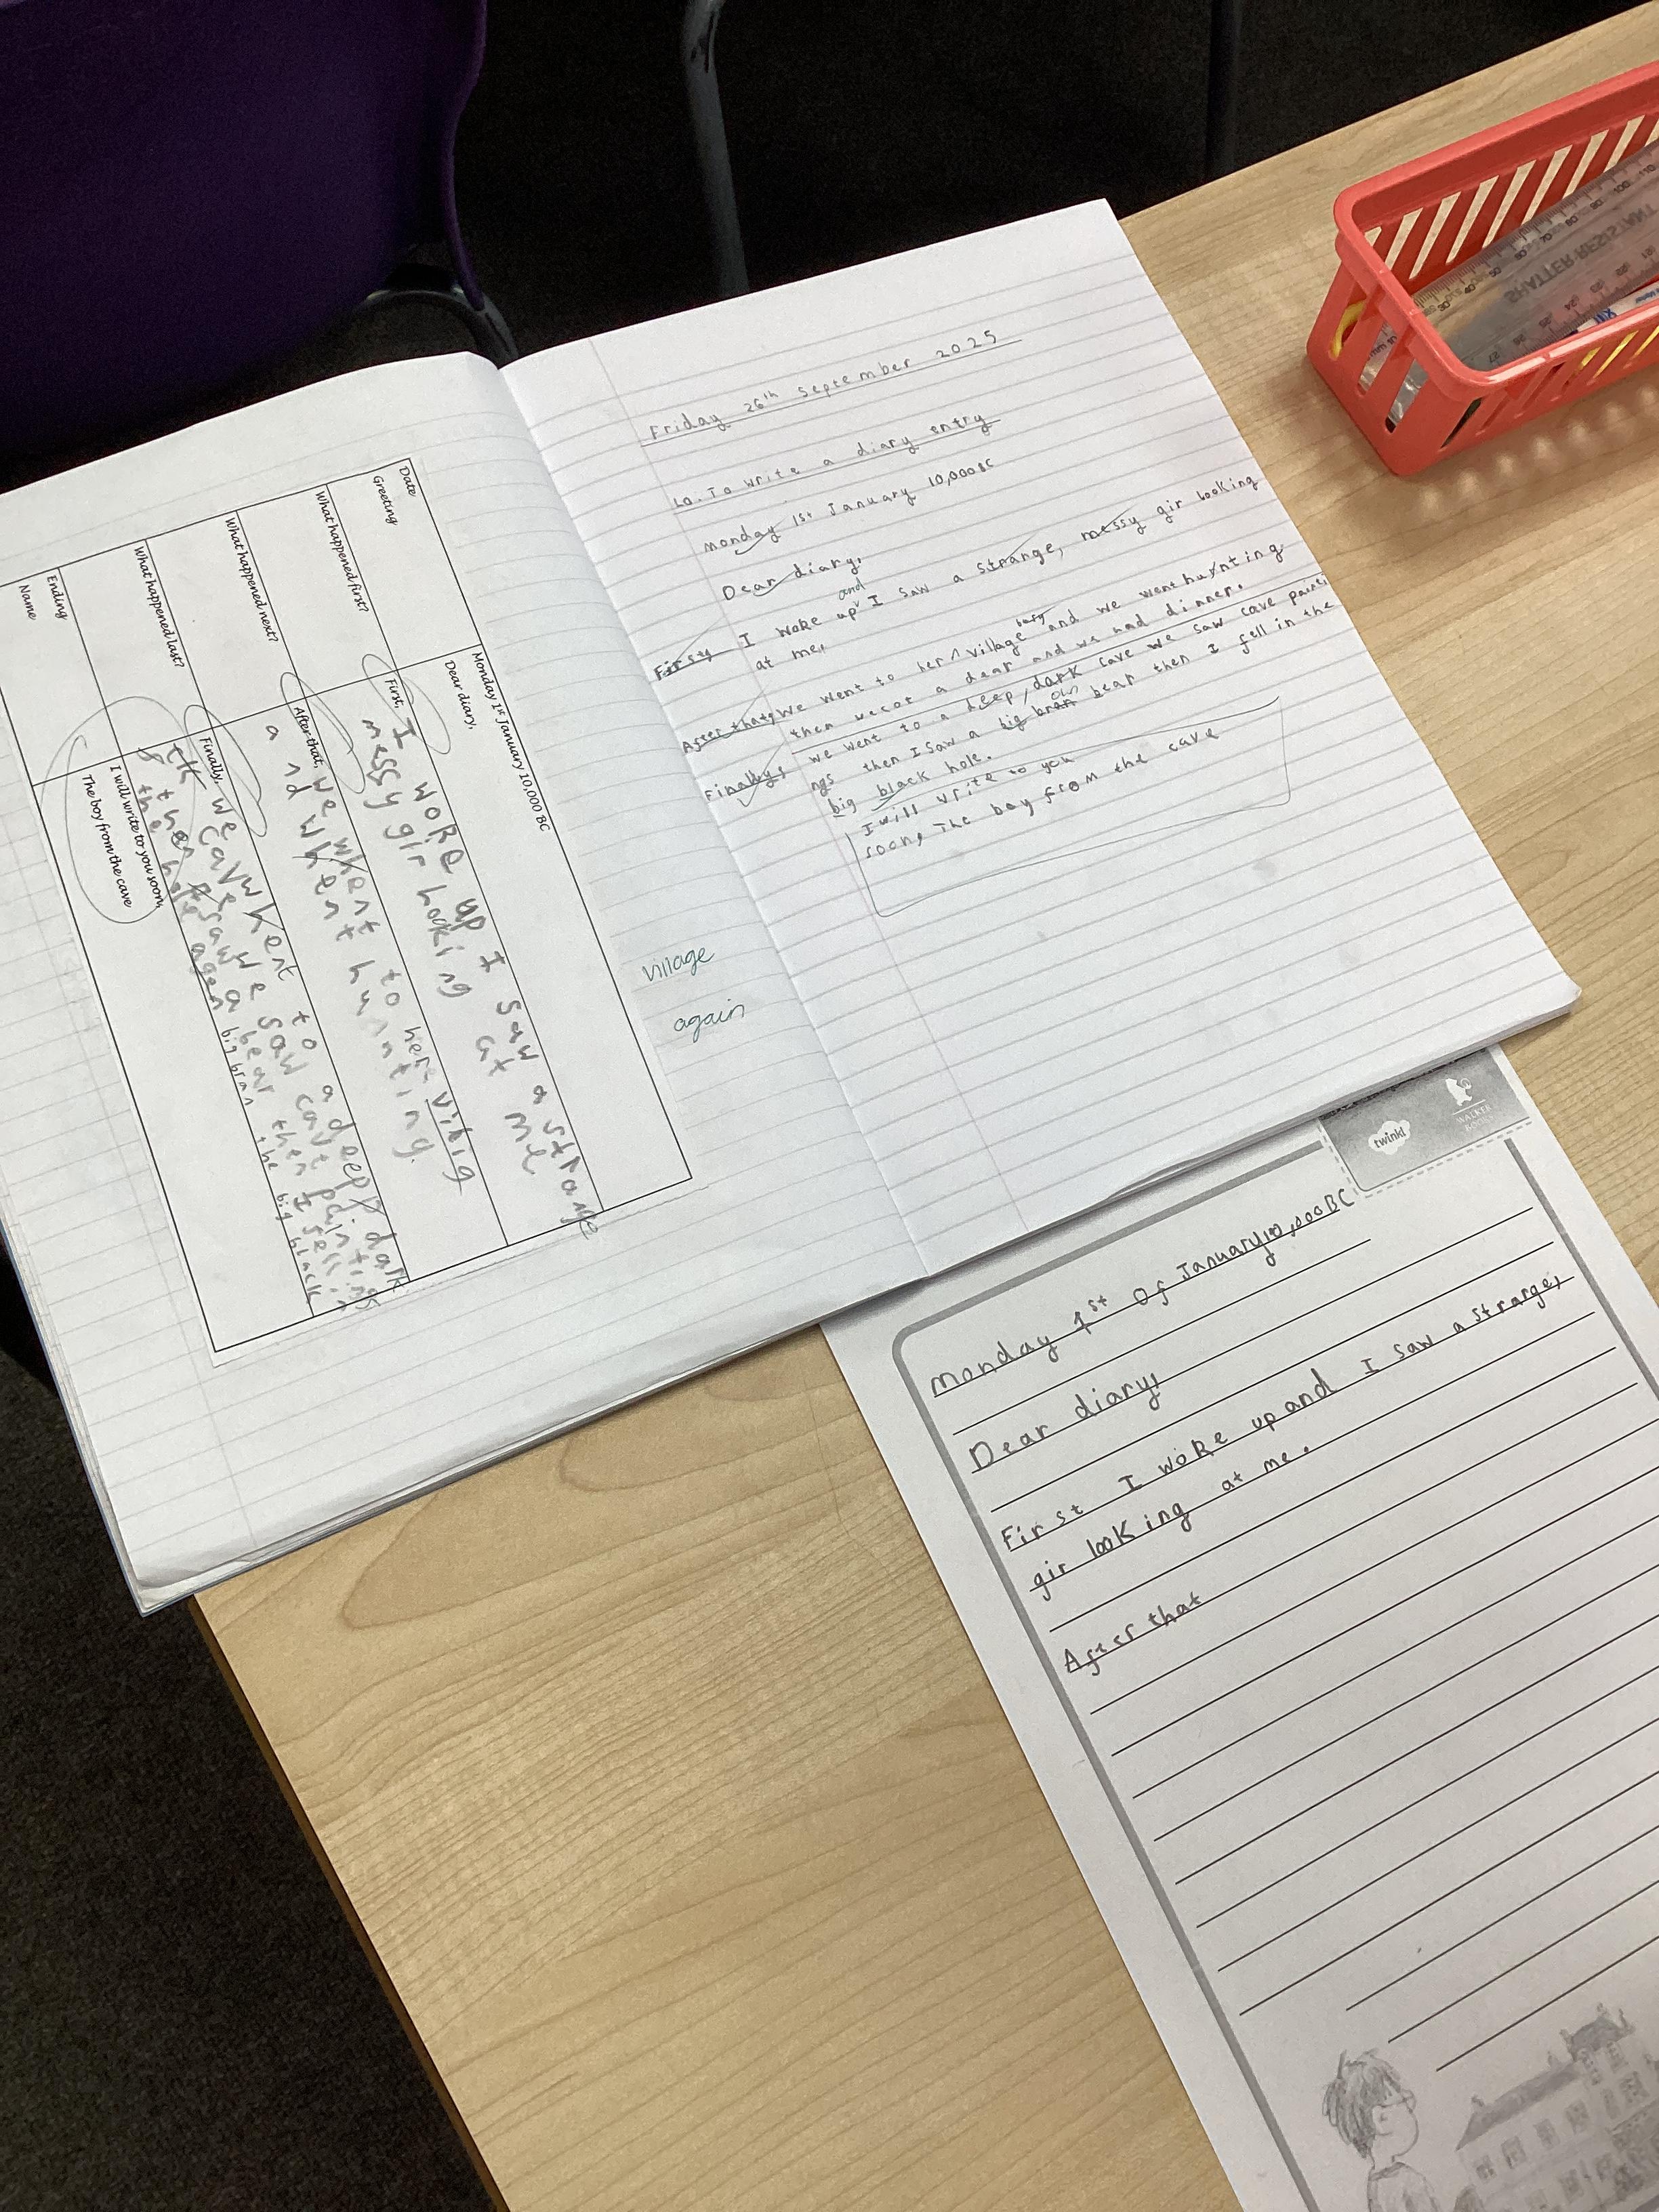 Date
Monday 1st January 10,000 BC
Greeting
Dear diary,
What happened first?
First, I woke up I saw a strange
messy gir looking at me
What happened next?
After that, we whent to her vilig
a nd whent hunnting.
What happened last?
Finally, we whent to a deep dark
cave we saw cave paintings
then I saw a bear then I fell in
the hole agen big bran the big black
Ending
I will write to you soon,
Name
The boy from the cave
village
again
Friday 26th September 2025
Lo. To write a diary entry
monday 1st January 10,000BC
Dear diary,
and
Firsty I woke up I saw a strange, messy gir looking
at me,
busy
After that, we went to her village and we went hunting
then a dear and we had dinner.
Finally, we went to a deep, dark cave we saw cave painti
ngs then I saw a big bran bear then I fell in the
big black hole.
I will write to you
soon, The boy from the cave
twinkl
WALKER
BOOKS
monday 1st Of January 10,000BC
Dear diary,
First I woke up and I saw a strange,
gir looking at me.
After that
SHATTER RESISTANT